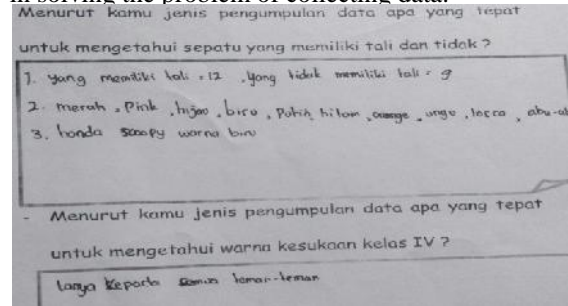 in solving the problem of collecting data.
Menurut kamu jenis pengumpulan data apa yang tepat
untuk mengetahui sepatu yang memiliki tali dan tidak?
1. yang memiliki tali = 12, yang tidak memiliki tali = 9
2. merah, Pink, hijao, biru, Putih, hitam, orange, ungu, , abu-a
3. honda scoopy warna biru
- Menurut kamu jenis pengumpulan data apa yang tepat
untuk mengetahui warna kesukaan kelas IV?
tanya Keparla teman-teman